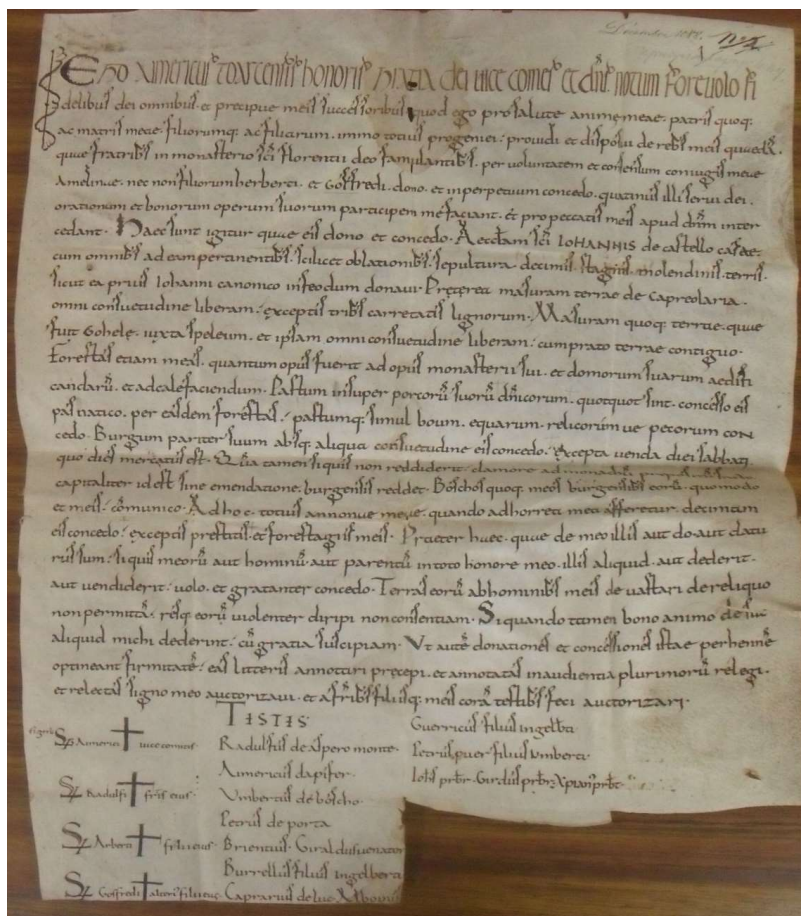 Decembre 1088.
EGO AIMERICUS TOARCENSIS honoris GRATIA dei vice comes et dns. notum fore volo fi
delibus dei omnibus. et precipue meis successoribus quod ego pro salute animę meae. patris quoq;
ac matris meae. filiorumq; ac filiarum. immo totius progeniei. providi et disposui de rebus meis quaedā.
quae fratribs in monasterio sci florentii deo famulantibs. per voluntatem et consensum coniugis meae
Amelinae. nec non filiorum herberti. et Gosfredi. dono. et in perpetuum concedo. quatinus illi servi dei.
orationum et bonorum operum suorum participem me faciant. et pro peccatis meis apud dnm inter
cedant. Haec sunt igitur quae eis dono et concedo. Aecclam sci IOHANNIS de castello casae.
cum omnibs ad eam pertinentibs. scilicet oblationibs. sepultura. decimis. stagnis. molendinis. terris.
sicut ea prius Iohanni canonico in feodum donavi. Pręterea masuram terrae de Capreolaria.
omni consuetudine liberam. exceptis tribs carretatis lignorum. Masuram quoq; terrae. quae
fuit Gohelę. iuxta speleum. et ipsam omni consuetudine liberam. cum prato terrae contiguo.
Forestas etiam meas. quantum opus fuerit ad opus monasterii sui. et domorum suarum aedifi
candarū. et ad calefaciendum. Pastum insuper porcorū suorū dnicorum. quotquot sint. concesso eis
pasnatico. per easdem forestas. pastumq; simul boum. equarum. relicorum ve pecorum con
cedo. Burgum pariter suum absq; aliqua consuetudine eis concedo. excepta venda diei sabbati.
quo dies mercatus est. Qua tamen si quis non reddiderit. clamore ad
capitaliter id est sine emendatione. burgensis reddet. Boschos quoq; meis burgensibs eorū. quomodo
et meis. cōmunico. Ad hoc. totius annonae meae. quando ad horrea mea afferetur. decimam
eis concedo. exceptis prestitis. et forestagiis meis. Praeter haec. quae de meo illis aut do. aut datu
rus sum. si quis meorū aut hominū. aut parentū in toto honore meo. illis aliquid. aut dederit.
aut vendiderit. volo. et gratanter concedo. Terras eorū ab hominibs meis devastari de reliquo
non permittā. resq; eorū violenter diripi non consentiam. Si quando tamen bono animo de suo
aliquid michi dederint. cū gratia suscipiam. Ut autē donationes et concessiones istae perhennē
optineant firmitatē. eas litteris annotari precepi. et annotatas in audientia plurimorū relegi.
et relectas signo meo auctorizavi. et a frībs filiisq; meis corā testibs feci auctorizari.
TESTIS
Guerricus filius ingelbti
S Aimerici vice comitis.
Radulfus de aspero monte.
Petrus puer filius Umberti
Aimericus dapifer.
Iohs prbr. Girdus prbr.
S Radulfi fris eius.
Umbertus de boscho.
Petrus de porta
S Arberti filii eius.
Brientius. Giraldus venator
Burrellus filius ingelberti
S Goffredi alteri filii eius.
Caprarius